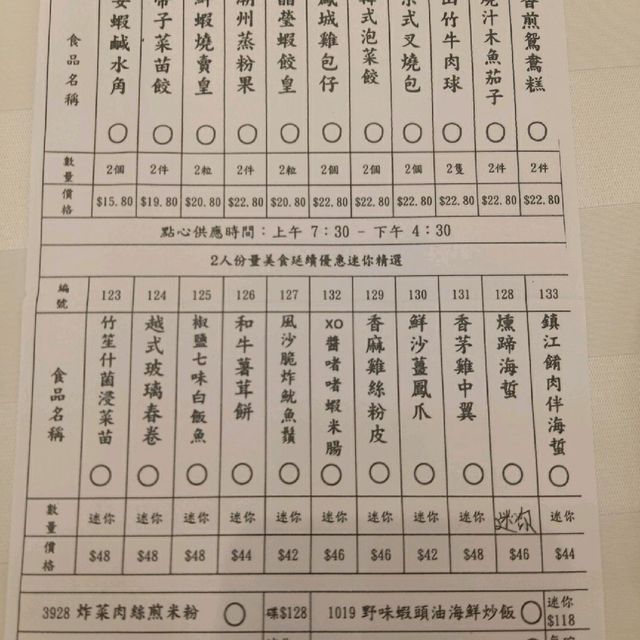 食品名稱
蝦鹹水角
子菜苗餃
蝦燒賣皇
州蒸粉果
瑩蝦餃皇
城雞包仔
式泡菜餃
式叉燒包
竹牛肉球
汁木魚茄子
香煎鴛鴦糕
數量 2個 2件 2粒 2件 2粒 2個 2個 2個 2隻 2件 2件
價格 $15.80 $19.80 $20.80 $22.80 $20.80 $22.80 $22.80 $22.80 $22.80 $22.80 $22.80
點心供應時間：上午 7:30 - 下午 4:30
2人份量美食延續優惠迷你精選
編號 123 124 125 126 127 132 129 130 131 128 133
食品名稱
竹笙什菌浸菜苗
越式玻璃春卷
椒鹽七味白飯魚
和牛薯茸餅
風沙脆炸魷魚鬚
XO醬啫啫蝦米腸
香麻雞絲粉皮
鮮沙薑鳳爪
香茅雞中翼
燻蹄海蜇
鎮江餚肉伴海蜇
數量 迷你 迷你 迷你 迷你 迷你 迷你 迷你 迷你 迷你 迷你 迷你
價格 $48 $48 $48 $44 $42 $46 $46 $42 $48 $46 $44
3928 炸菜肉絲煎米粉 碟$128 1019 野味蝦頭油海鮮炒飯 迷你 $118